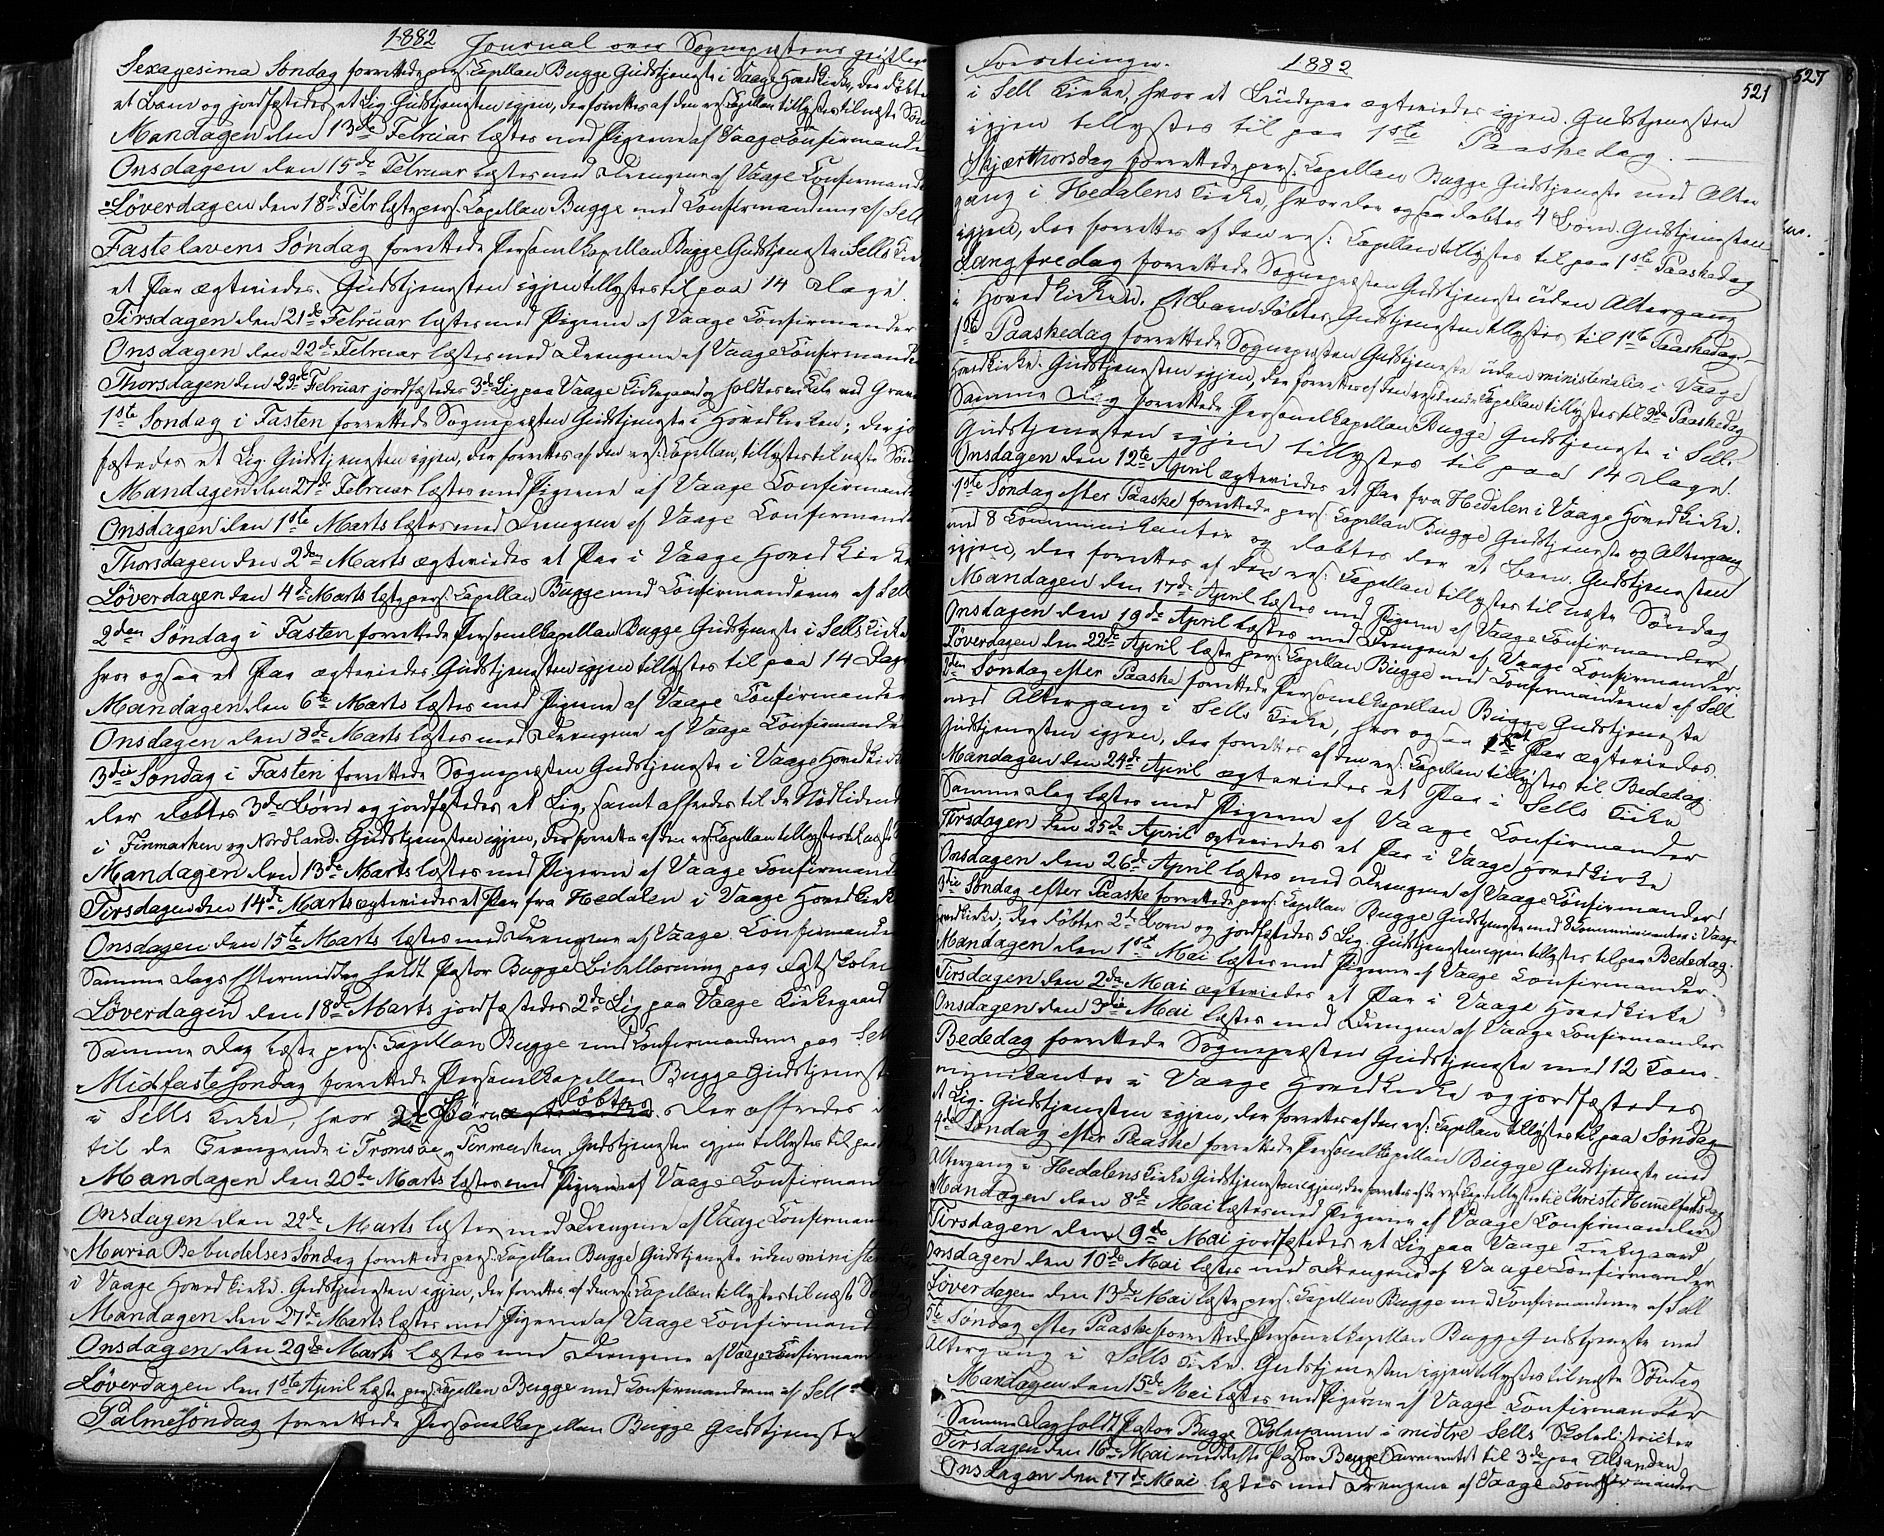 1882 Journal over Sognepræstens geistlige
Sexagesima Søndag forrettede pers: Capellan Bugge Gudstjeneste i Vaage Hovedkirke, der døbtes
et Barn og jordfæstedes et Lig. Gudstjenesten igjen, der forrettes af den res: Capellan tillystes til næste Søn
Mandagen den 13de Februar læstes med Pigerne af Vaage Confirmander
Onsdagen den 15de Februar læstes med Drengene af Vaage Confirmander
Løverdagen den 18de Febr læste pers: Capellan Bugge med Confirmanderne af Sell
Fastelavens Søndag forrettede Personelkapellan Bugge Gudstjeneste i Sells Kirke
et Par ægteviedes. Gudstjenesten igjen tillystes til paa 14 Dage.
Tirsdagen den 21de Februar læstes med Pigerne af Vaage Confirmander
Onsdagen den 22de Februar læstes med Drengene af Vaage Confirmander
Thorsdagen den 23de Februar jordfæstedes 3de Lig paa Vaage Kirkegaard og holdtes en Tale ved Graven
1ste Søndag i Fasten forrettede Sognepræsten Gudstjeneste i Hovedkirken; der jo
fæstedes et Lig. Gudstjenesten igjen, der forrettes af den res: Capellan, tillystes til næste Sønd
Mandagen den 27de Februar læstes med Pigerne af Vaage Confirmander
Onsdagen den 1ste Marts læstes med Drengene af Vaage Confirmande
Thorsdagen den 2den Marts ægteviedes et Par i Vaage Hovedkirke
Løverdagen den 4de Marts læste pers: Capellan Bugge med Confirmanderne af Sell
2den Søndag i Fasten forrettede Personelkapellan Bugge Gudstjeneste i Sells Kirke
hvor ogsaa et Par ægteviedes Gudstjenesten igjen tillystes til paa 14 Dage
Mandagen den 6te Marts læstes med Pigerne af Vaage Confirmander
Onsdagen den 8de Marts læstes med Drengene af Vaage Confirmander
3die Søndag i Fasten forrettede Sognepræsten Gudstjeneste i Vaage Hovedkirke
der døbtes 3de Børn og jordfæstedes et Lig, samt offredes til de Nødlidende
i Finmarken og Nordland. Gudstjenesten igjen, der forrettes af den res: Capellan tillystes til næste
Mandagen den 13de Marts læstes med Pigerne af Vaage Confirmande
Tirsdagen den 14de Marts ægteviedes et Par fra Hedalen i Vaage Hovedkirke
Onsdagen den 15te Marts læstes med Drengene af Vaage Confirmander
Samme Dags Eftermiddag holdt Pastor Bugge Bibellæsning paa
Løverdagen den 18de Marts jordfæstedes 2de Lig paa Vaage Kirkegaard
Samme Dag læste pers: Capellan Bugge med Confirmanderne paa Sell
Midfaste Søndag forrettede Personelkapellan Bugge Gudstjeneste
i Sells Kirke, hvor 2de Børn døbtes. Der offredes
til de Trængende i Tromsøe og Finmarken Gudstjenesten igjen tillystes til paa
Mandagen den 20de Marts læstes med Pigerne af Vaage Confirman
Onsdagen den 22de Marts læstes med Drengene af Vaage Confirmander
Maria Bebudelses Søndag forrettede pers: Capellan Bugge Gudstjeneste uden ministe
i Vaage Hovedkirke. Gudstjenesten igjen, der forrettes af den res: Capellan tillystes til næste Søndag
Mandagen den 27de Marts læstes med Pigerne af Vaage Confirmand
Onsdagen den 29de Marts læstes med Drengene af Vaage Confirmander
Løverdagen den 1ste April læste pers: Capellan Bugge med Confirmanderne af Sell
Palmesøndag forrettede Personelkapellan Bugge Gudstjeneste
Forretninger. 1882
521
527
i Sell Kirke, hvor et Brudepar ægteviedes igjen. Gudstjenesten
igjen tillystes til paa 1ste Paaskedag.
Skjærthorsdag forrettede pers: Capellan Bugge Gudstjeneste med Alter
gang i Hedalens Kirke, hvor der ogsaa døbtes 4 Børn. Gudstjenesten
igjen, der forrettes af den res: Capellan tillystes til paa 1ste Paaskedag
Langfredag forrettede Sognepræsten Gudstjeneste uden Altergang
i Hovedkirken. Et Barn døbtes. Gudstjenesten tillystes til 1ste Paaskedag
1ste Paaskedag forrettede Sognepræsten Gudstjeneste uden ministerialia i Vaage
Hovedkirke. Gudstjenesten igjen, der forrettes af den residerende Capellan tillystes til 2de Paaskedag
Samme Dag forrettede Personelkapellan Bugge Gudstjeneste i Sell.
Gudstjenesten igjen tillystes til paa 14 Dage.
Onsdagen den 12te April ægteviedes et Par fra Hedalen i Vaage Hovedkirke.
1ste Søndag efter Paaske forrettede pers: Capellan Bugge Gudstjeneste og Altergang
med 8 Communikanter og døbtes der et Barn. Gudstjenesten
igjen, der forrettes af den res: Capellan tillystes til næste Søndag
Mandagen den 17de April læstes med Pigerne af Vaage Confirmander
Onsdagen den 19de April læstes med Drengene af Vaage Confirmander.
Løverdagen den 22de April læste pers: Capellan Bugge med Confirmanderne af Sell
2den Søndag efter Paaske forrettede Personelkapellan Bugge Gudstjeneste
med Altergang i Sells Kirke, hvor ogsaa et Par ægteviedes.
Gudstjenesten igjen, der forrettes af den res: Capellan tillystes til Bededag.
Mandagen den 24de April ægteviedes et Par i Sells Kirke
Samme Dag læstes med Pigerne af Vaage Confirmander
Tirsdagen den 25de April ægteviedes et Par i Vaage Hovedkirke
Onsdagen den 26de April læstes med Drengene af Vaage Confirmander
3die Søndag efter Paaske forrettede pers: Capellan Bugge Gudstjeneste med 8 Communicanter i Vaage
Hovedkirke; der døbtes 2de Børn og jordfæstedes 5 Lig. Gudstjenesten igjen tillystes til paa Bededag
Mandagen den 1ste Mai læstes med Pigerne af Vaage Confirmander
Tirsdagen den 2den Mai ægteviedes et Par i Vaage Hovedkirke
Onsdagen den 3die Mai læstes med Drengene af Vaage Confirmander
Bededag forrettede Sognepræsten Gudstjeneste med 12 Com-
munikanter i Vaage Hovedkirke og jordfæstedes
et Lig. Gudstjenesten igjen, der forrettes af den res: Capellan tillystes til paa Søndag
4de Søndag efter Paaske forrettede Personelkapellan Bugge Gudstjeneste med
Altergang i Hedalens Kirke Gudstjenesten igjen, der forrettes af den res: Cap: tillystes til Christi Himmelfartsdag
Mandagen den 8de Mai læstes med Pigerne af Vaage Confirmander
Tirsdagen den 9de Mai jordfæstedes et Lig paa Vaage Kirkegaard
Onsdagen den 10de Mai læstes med Drengene af Vaage Confirmander
Løverdagen den 13de Mai læste pers: Capellan Bugge med Confirmanderne af Sell
5te Søndag efter Paaske forrettede Personelkapellan Bugge Gudstjeneste med
Altergang i Sells Kirke. Gudstjenesten igjen tillystes til næste Søndag
Mandagen den 15de Mai læstes med Pigerne af Vaage Confirmander
Samme Dag holdt Pastor Bugge Skoleexamen i midtre Sells Skoledistrict
Tirsdagen den 16de Mai meddelte Pastor Bugge Sacramentet til 3de paa Ulsanden
Onsdagen den 17de Mai læstes med Drengene af Vaage Confirmander